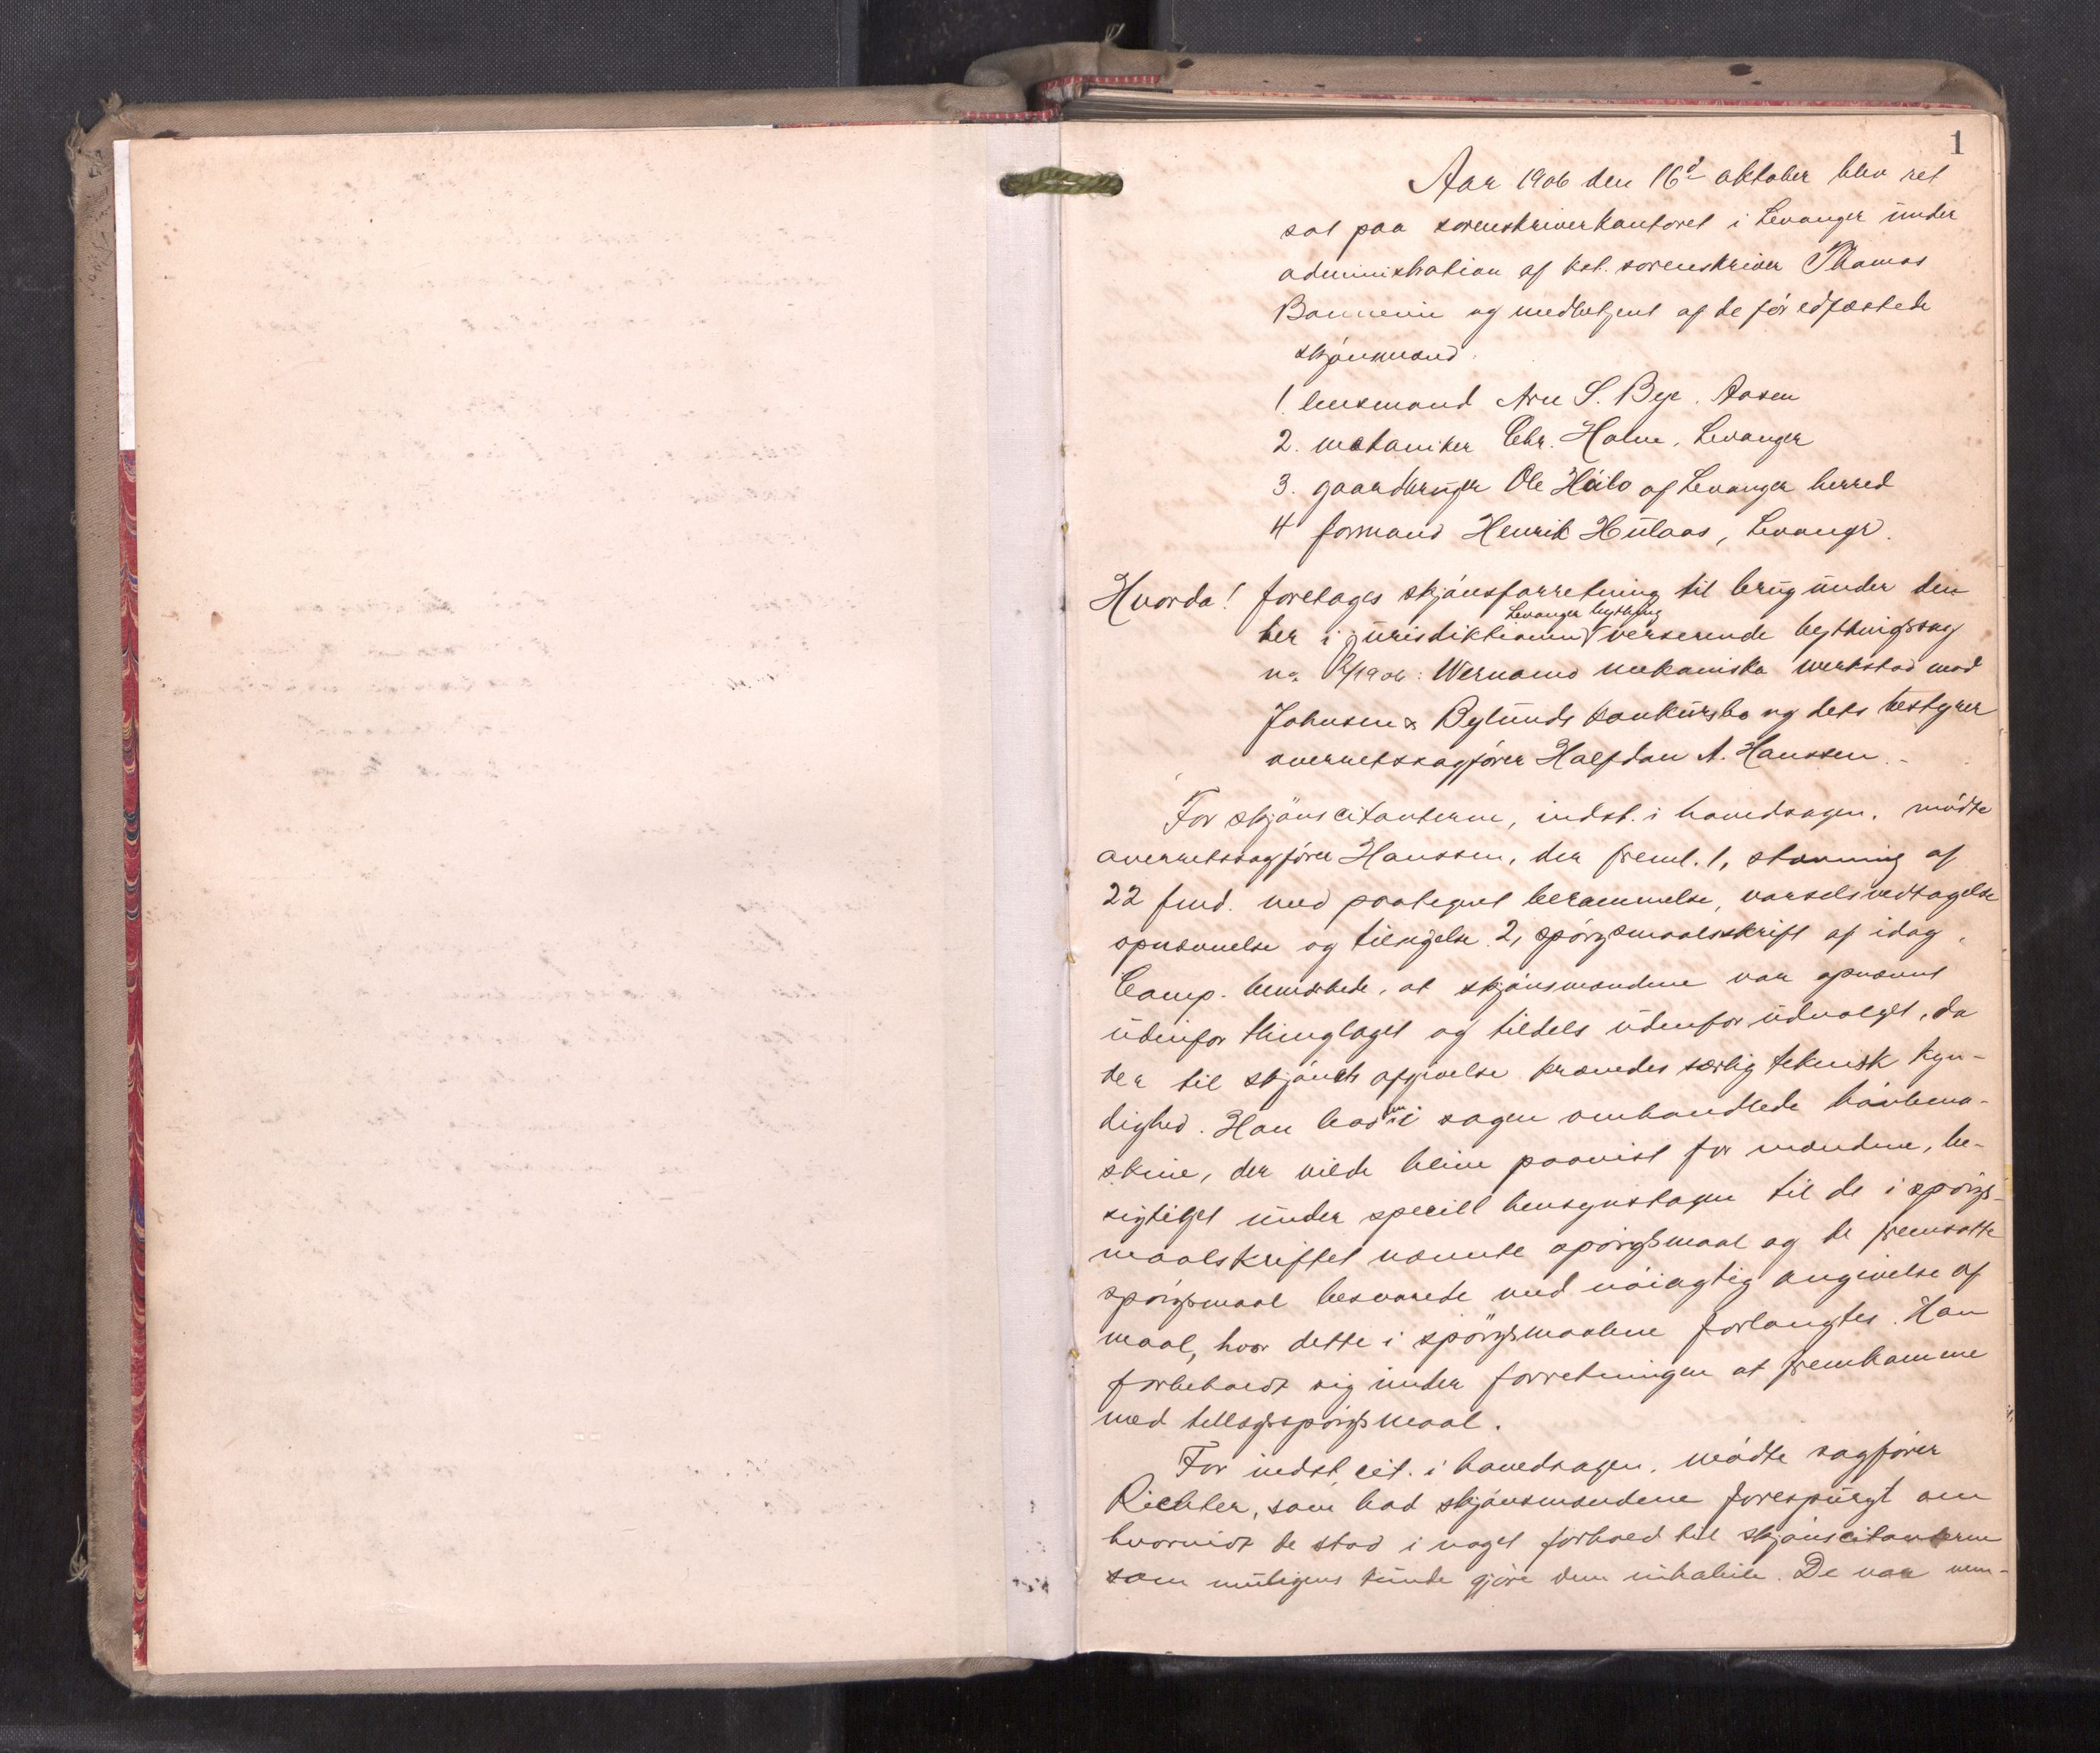 1
Aar 1906 den 16d oktober blev ret
sat paa sorenskriverkontoret i Levanger under
administration af kst. sorenskriver Thomas
Bonnevie og medbetjent af de før edfæstede
skjønsmænd:
1. lensmand Arn S. Bye. Aasen
2. mekaniker Chr. Holm, Levanger
3. gaardbruger Ole Heibo af Levanger herred
4 formand Henrik Hulaas, Levanger.
Hvorda! foretages skjønsforretning til brug under den
Levanger bything
her i jurisdiktionen verserende bythingssag
no 12/1906: Wernamo mekaniska werkstad mod
Johnsen & Bylunds konkursbo og dets bestyrer
overretssagfører Halfdan A. Hanssen.-
For skjønscitanterne, indst. i hovedsagen, mødte
overretssagfører Hanssen, der freml. 1, stævning af
22 fmd. med paategnet berammelse, varselsvedtagelse
opnævnelse og tilsigelse. 2, spørgsmaalsskrift af idag.
Comp. bemærkede, at skjønsmændene var opnævnt
udenfor thinglaget og tildels udenfor udvalget, da
der til skjønets afgivelse krævedes særlig teknisk kyn-
dighed. Han bad den i sagen omhandlede høvlema-
skine, der vilde blive paavist for mændene, be-
sigtiget under speciell hensynstagen til de i spørgs-
maalskriftet nævnte spørgsmaal og de fremsatte
spørgsmaal besvarede med nøiagtig angivelse af
maal, hvor dette i spørgsmaalene forlangtes. Han
forbeholdt sig under forretningen at fremkomme
med tillægsspørgsmaal.
For indst. cit. i hovedsagen, mødte sagfører
Richter, som bad skjønsmændene forespurgt om
hvorvidt de stod i noget forhold til skjønscitanterne
som muligens kunde gjøre dem inhabile. De var vem-